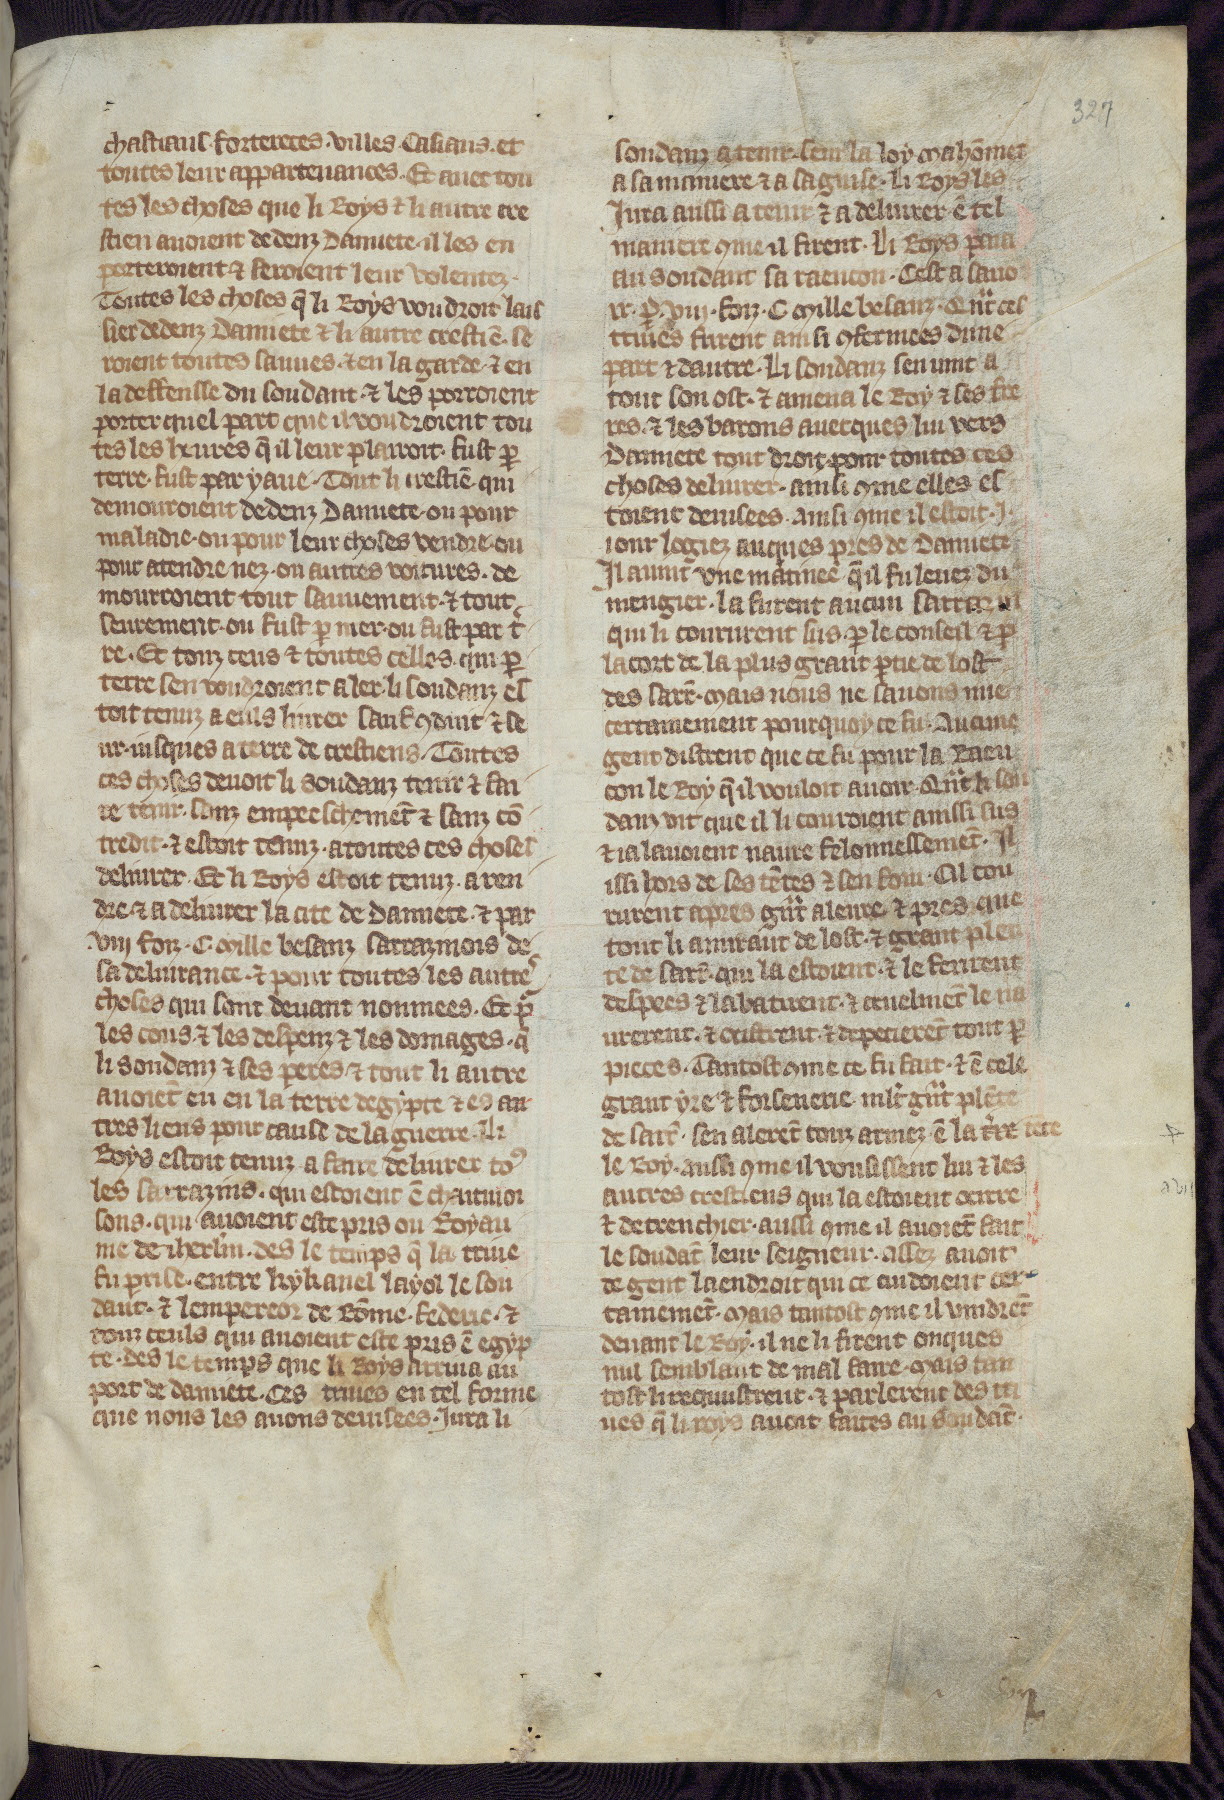 327
chastiaus. fortereces. villes. Casiaus. et
toutes leur appartenances. Et auec tou
tes les choses que li Roys ⁊ li autre cre
stien auoient dedenz Damiete. il les en
porteroient ⁊ feroient leur volentez.
Toutes les choses q̃ li Roys voudroit lais
sier dedenz Damiete ⁊ li autre crestiē. se
roient toutes sauues. ⁊ en la garde. ⁊ en
la deffensse du soudant. ⁊ les porroient
porter quel part que il voudroient tou
tes les heures q̃ il leur plairoit. fust p̱
terre. fust par yaue. Tout li crestiē. qui
demourroient dedenz Damiete. ou pour
maladie. ou pour leur choses vendre. ou
pour atendre nez. ou autres voitures. de
mourroient tout sauuement. ⁊ tout
seurement. ou fust p̱ mer. ou fust par t̾
re. Et touz ceus ⁊ toutes celles. qui p̱
terre sen voudroient aler. li soudanz es
toit tenuz a euls liurer sauf ꝯduit ⁊ se
ur. iusques a terre de crestiens. Toutes
ces choses deuoit li soudanz tenir ⁊ fai
re tenir. sanz empeeschemēt ⁊ sanz cō
tredit. ⁊ estoit tenuz. a toutes ces choses
deliurer. Et li Roys estoit tenuz. a ren
dre. ⁊ a deliurer la cite de Damiete. ⁊ par
.viij foiz. C. Mille besanz sarrazinois de
sa deliurance. ⁊ pour toutes les autres
choses qui sont deuant nommees. Et p̱
les cous. ⁊ les despenz ⁊ les domages. q̃
li soudanz ⁊ ses peres. ⁊ tout li autre
auoiēt eu en la terre degypte ⁊ es au
tres liens pour cause de la guerre. Li
Roys estoit tenuz a faire deliurer toꝰ
les sarrazins. qui estoient ē chaitiuoi
sons. qui auoient este pris ou Royau
me de iherlm̄. des le temps q̃ la triue
fu prise. entre kykanel layol le sou
dant. ⁊ lempereor de Rōme. federic. ⁊
touz ceuls qui auoient este pris ē egyp
te. des le temps que li Roys arriua au
port de damiete. Ces triues en tel forme
que nous les auons deuisees. Iura li
soudanz a tenir. seur la loy Mahōmet
a sa maniere ⁊ a sa guise. Li Roys les
Iura aussi a tenir ⁊ a deliurer. ē tel
maniere ꝯme il firent. Li Roys paia
au soudant sa raencon. Cest a sauo
ir. p̱. viij. foiz. C Mille besanz. Qn̄t ces
triues furent ainsi ꝯfermees dune
part ⁊ dautre. Li soudanz sen vint a
tout son ost. ⁊ amena le Roy ⁊ ses fre
res. ⁊ les barons auecques lui vers
Damiete tout droit. pour toutes ces
choses deliurer. ainsi ꝯme elles es
toient deuisees. Ainsi ꝯme il estoit. J.
iour logiez auques pres de Damiete
Il auint vne matinee q̃ il fu leuez du
mengier. la furent aucun sarrazin
qui li coururent sus. p̱ le conseil ⁊ p̱
lacort de la plus grant p̱tie de lost
des sarr̄. Mais nous ne sauons mie
certainement pourquoy ce fu. Aucune
gent distrent que ce fu pour la Raen
con le Roy q̃ il vouloit auoir. Qn̄t li sou
danz vit que il li couroient ainssi sus
⁊ ia lauoient naure felonnessemēt. Il
issi hors de ses tētes ⁊ sen foui. Cil cou
rurent apres gn̄t aleure. ⁊ pres que
tout li amiraut de lost. ⁊ grant plen
te de sarr̄. qui la estoient. ⁊ le ferirent
despees ⁊ labatirent. ⁊ cruelmēt le na
urerent. ⁊ occistrent. ⁊ depecierēt tout p̱
pieces. Tantost ꝯme ce fu fait. ⁊ ē cele
grant yre ⁊ forsenerie. mlt̄ gn̄t plēte
de sarr̄. sen alerēt touz armez ē la tēte
le Roy. Aussi ꝯme il vousissent lui ⁊ les
autres crestiens qui la estoient occirre
⁊ detrenchier. aussi ꝯme il auoiēt fait
le soudāt leur seigneur. Assez auoit
de gent la endroit qui ce cuidoient cer
tainemēt. Mais tantost ꝯme il vindrēt
deuant le Roy. il ne li firent onques
nul semblant de mal faire. Mais tan
tost li requistrent. ⁊ parlerent des tri
ues q̃ li roys auoit faites au Soudāt.